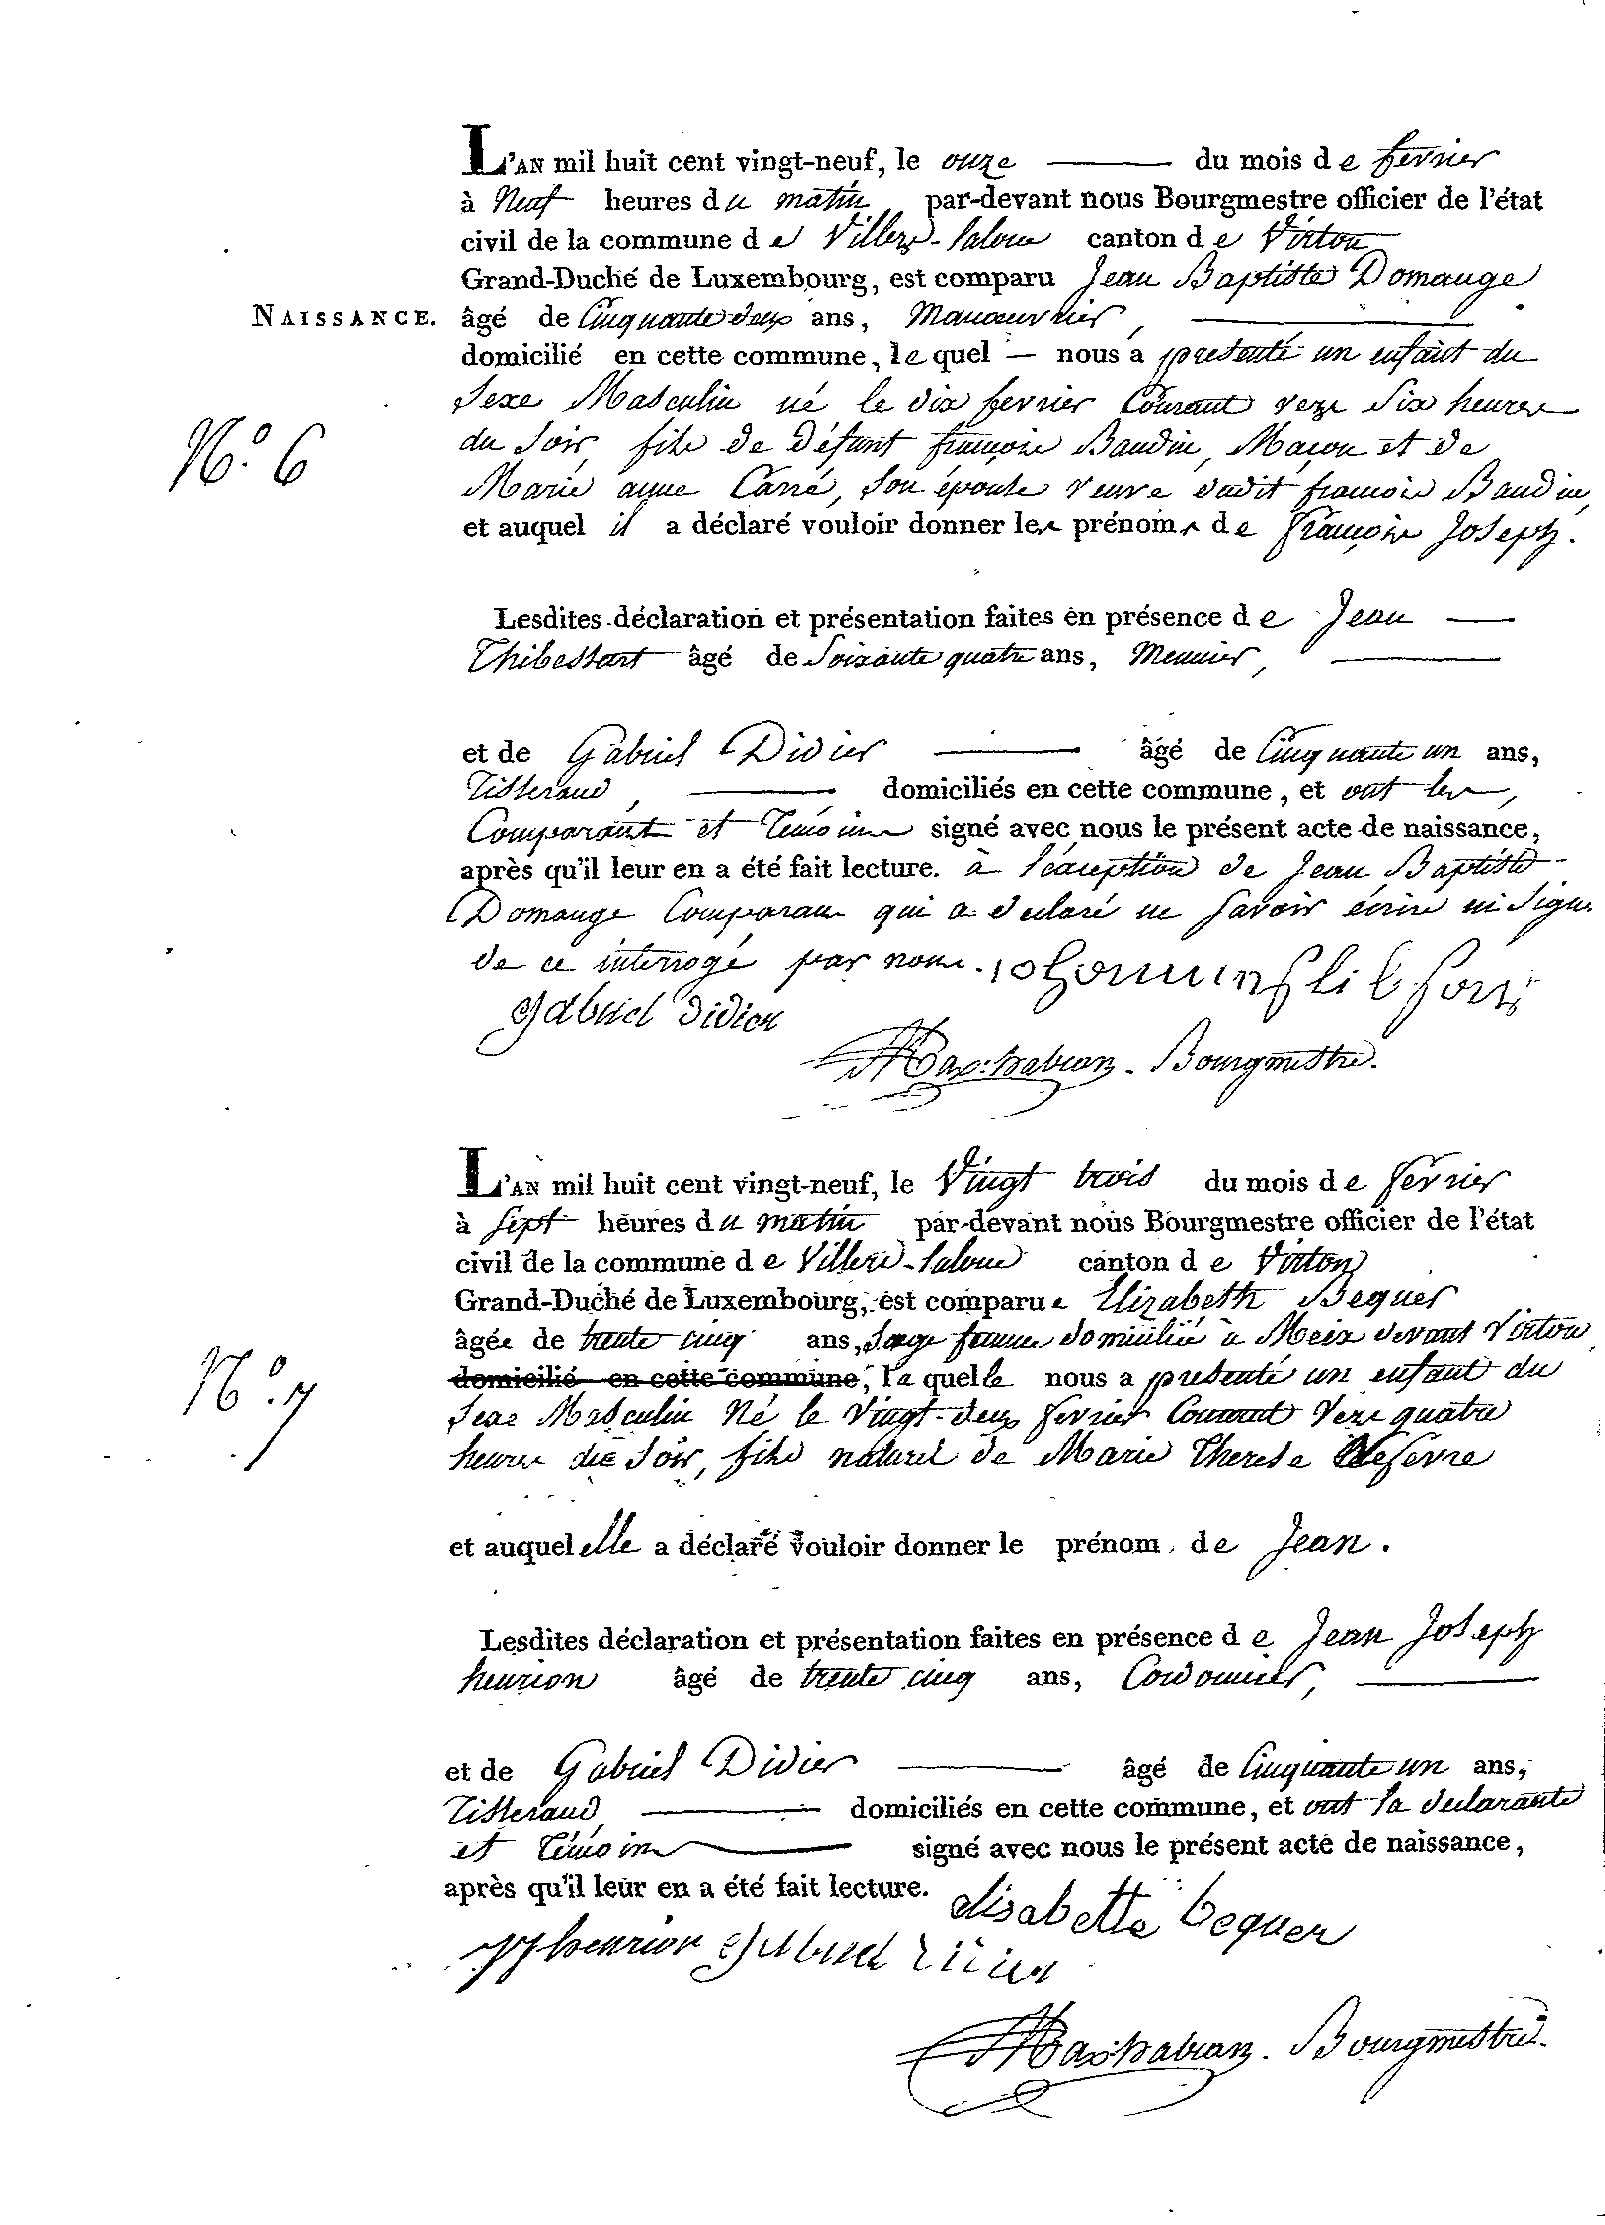 L'AN mil huit cent vingt-neuf, le onze du mois de fevrier
à Neuf heures du matin par-devant nous Bourgmestre officier de l'état
civil de la commune de Villers-laloue canton de Virton
Grand-Duché de Luxembourg, est comparu Jean Baptiste Domange
NAISSANCE. âgé de Cinquante deux ans, Manœuvrier,
domicilié en cette commune, le quel — nous a presenté un enfant du
Sexe Masculin né le dix fevrier Courant vers Six heures
N.º 6
du Soir, fils de défunt françois Baudin, Maçon et de
Marie anne Carré, Son épouse veuve dudit françois Baudin,
et auquel il a déclaré vouloir donner les prénoms de françois Joseph.
Lesdites déclaration et présentation faites en présence de Jean
Thibessart âgé de Soixante quatre ans, Meunier,
et de Gabriel Didier âgé de Cinquante un ans,
Tisserand, domiciliés en cette commune, et ont les,
Comparant et Témoins signé avec nous le présent acte de naissance,
après qu'il leur en a été fait lecture. à l'éxception de Jean Baptiste
Domange Comparant qui a declaré ne Savoir écrire ni Signer
de ce interrogé par nous.
gabriel didier
Bourgmestre.
L'AN mil huit cent vingt-neuf, le Vingt trois du mois de février
à Sept heures du matin par-devant nous Bourgmestre officier de l'état
civil de la commune de Villers-laloue canton de Virton
Grand-Duché de Luxembourg, est comparue Elizabeth Bequer
âgée de trente cinq ans, Sage femme domiciliée à Meix devant Virton
domicilié en cette commune, la quelle nous a presenté un enfant du
N.º 7
Sexe Masculin Né le Vingt-deux fevrier Courant Vers quatre
heures du Soir, fils naturel de Marie Therese Lefevre
et auquel elle a déclaré vouloir donner le prénom de Jean.
Lesdites déclaration et présentation faites en présence de Jean Joseph
henrion âgé de trente cinq ans, Cordonnier,
et de Gabriel Didier âgé de Cinquante un ans,
Tisserand, domiciliés en cette commune, et ont la declarante
et Témoins signé avec nous le présent acte de naissance,
après qu'il leur en a été fait lecture. elisabette bequer
henrion gabriel didier
Bourgmestre.